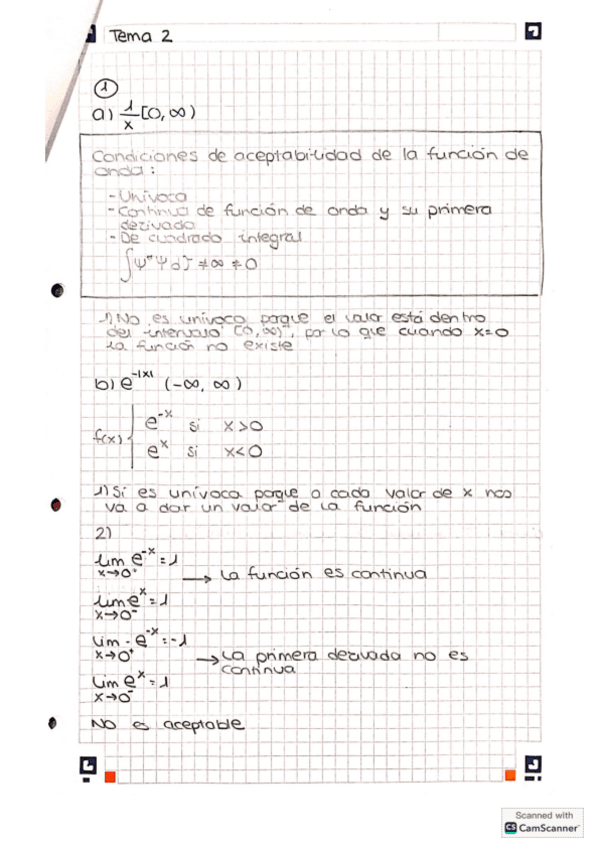 Tema 2
1
a) 1/x [0, ∞)
Condiciones de aceptabilidad de la función de
onda:
- Unívoca
- Continua de función de onda y su primera
derivada
- De cuadrado integral
∫Ψ*Ψ dτ ≠ ∞ ≠ 0
1) No es unívoca porque el valor está dentro
del intervalo [0, ∞), por lo que cuando x=0
la función no existe
b) e^-|x| (-∞, ∞)
f(x) { e^-x si x>0
e^x si x<0
1) Sí es unívoca porque a cada valor de x nos
va a dar un valor de la función
2)
lim e^-x = 1
x→0⁺
→ La función es continua
lim e^x = 1
x→0⁻
lim - e^-x = -1
x→0⁺
→ La primera derivada no es
continua
lim e^x = 1
x→0⁻
No es aceptable
Scanned with
CS CamScanner